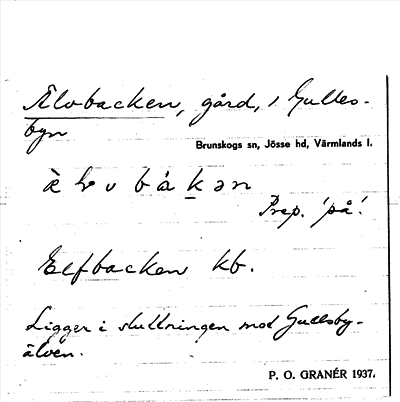 Älvbacken, gård, i Gulles-
byn
Brunskogs sn, Jösse hd, Värmlands l.
Prep. 'på'.
Elfbacken kb.
Ligger i sluttningen mot Gullsby-
älven.
P. O. GRANÉR 1937.